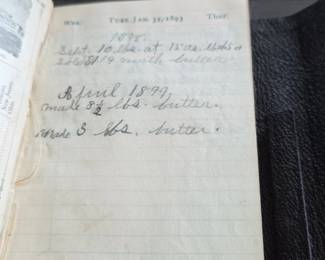 Wea. TUES. JAN. 31, 1893 Ther.
1898.
Sept. 10 lbs. at 15 cts.
Sold $1.19 worth butter.
April 1899
made 8½ lbs. butter.
made 3 lbs. butter.